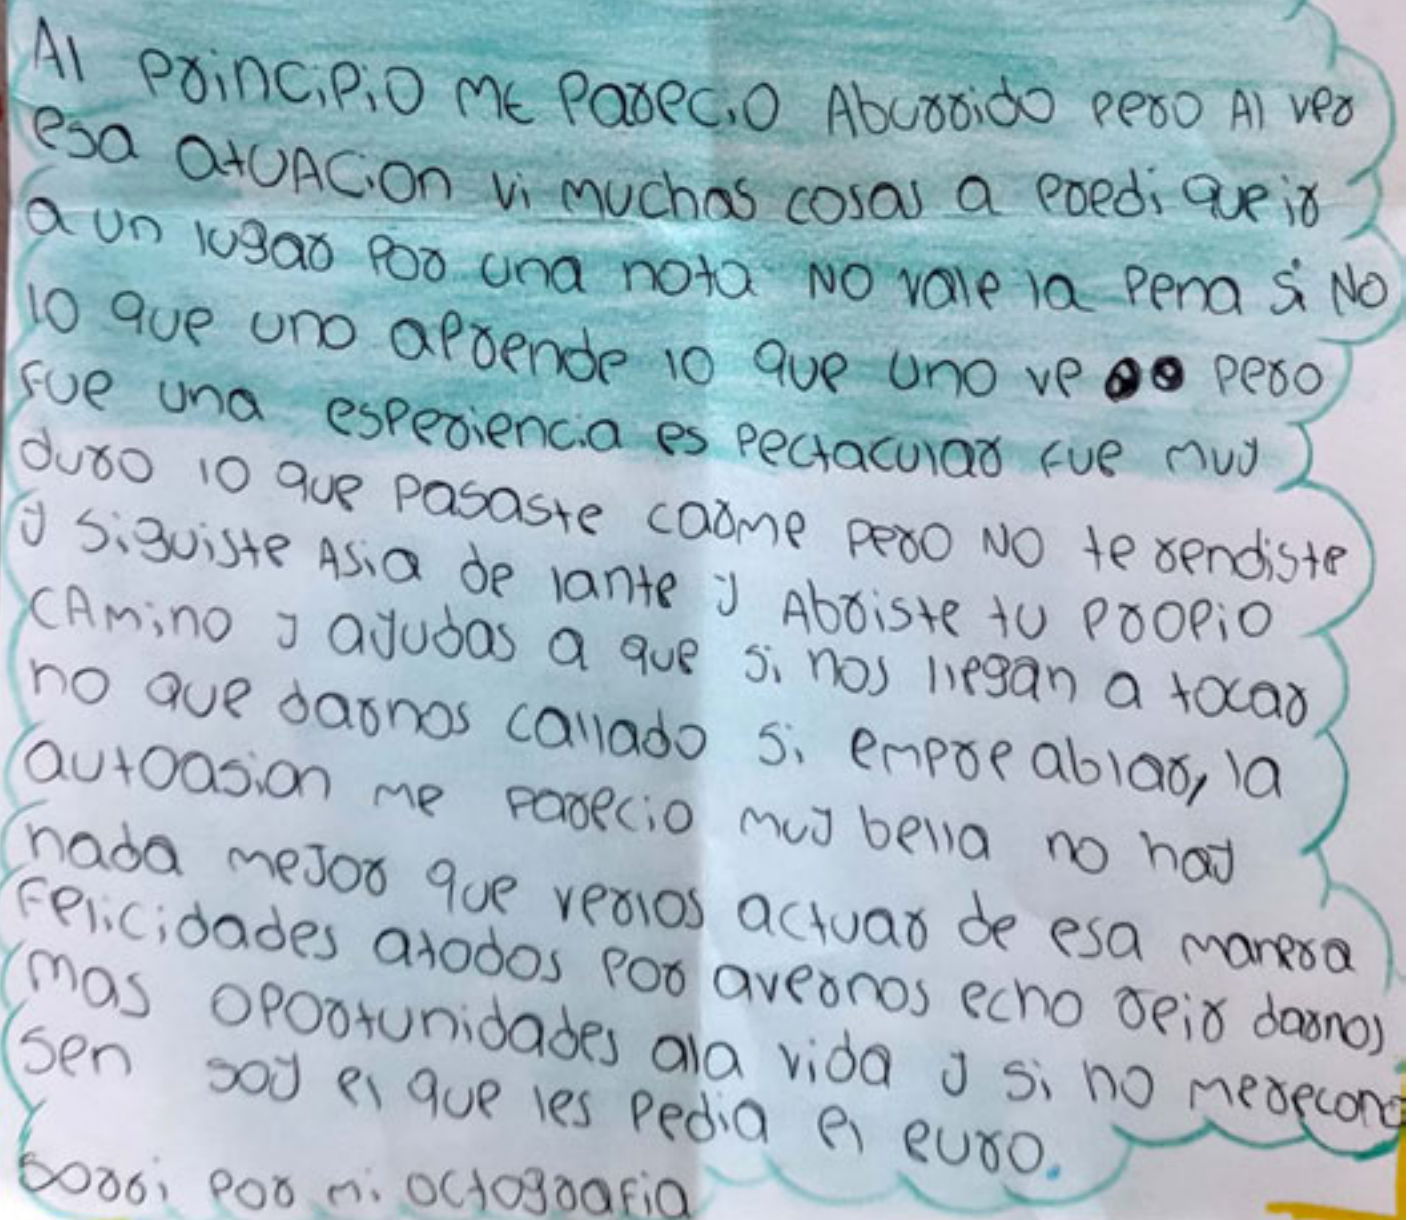 Al principio me parecio Aburrido pero Al ver
esa atuAcion vi muchas cosas a poedi que ir
a un lugar por una nota NO vale la pena si NO
lo que uno aprende lo que uno ve pero
fue una esperiencia es pectacular fue muy
duro lo que pasaste carme pero NO te rendiste
y siguiste Asia de lante y Abriste tu propio
CAmino y ayudas a que si nos llegan a tocar
no que darnos callado si empre ablar, la
autoasion me parecio muy bella no hay
nada mejor que verlos actuar de esa manera
Felicidades atodos por avernos echo reir darnos
mas oportunidades ala vida y si no merecono
sen soy el que les pedia el euro.
sorri por mi octografia